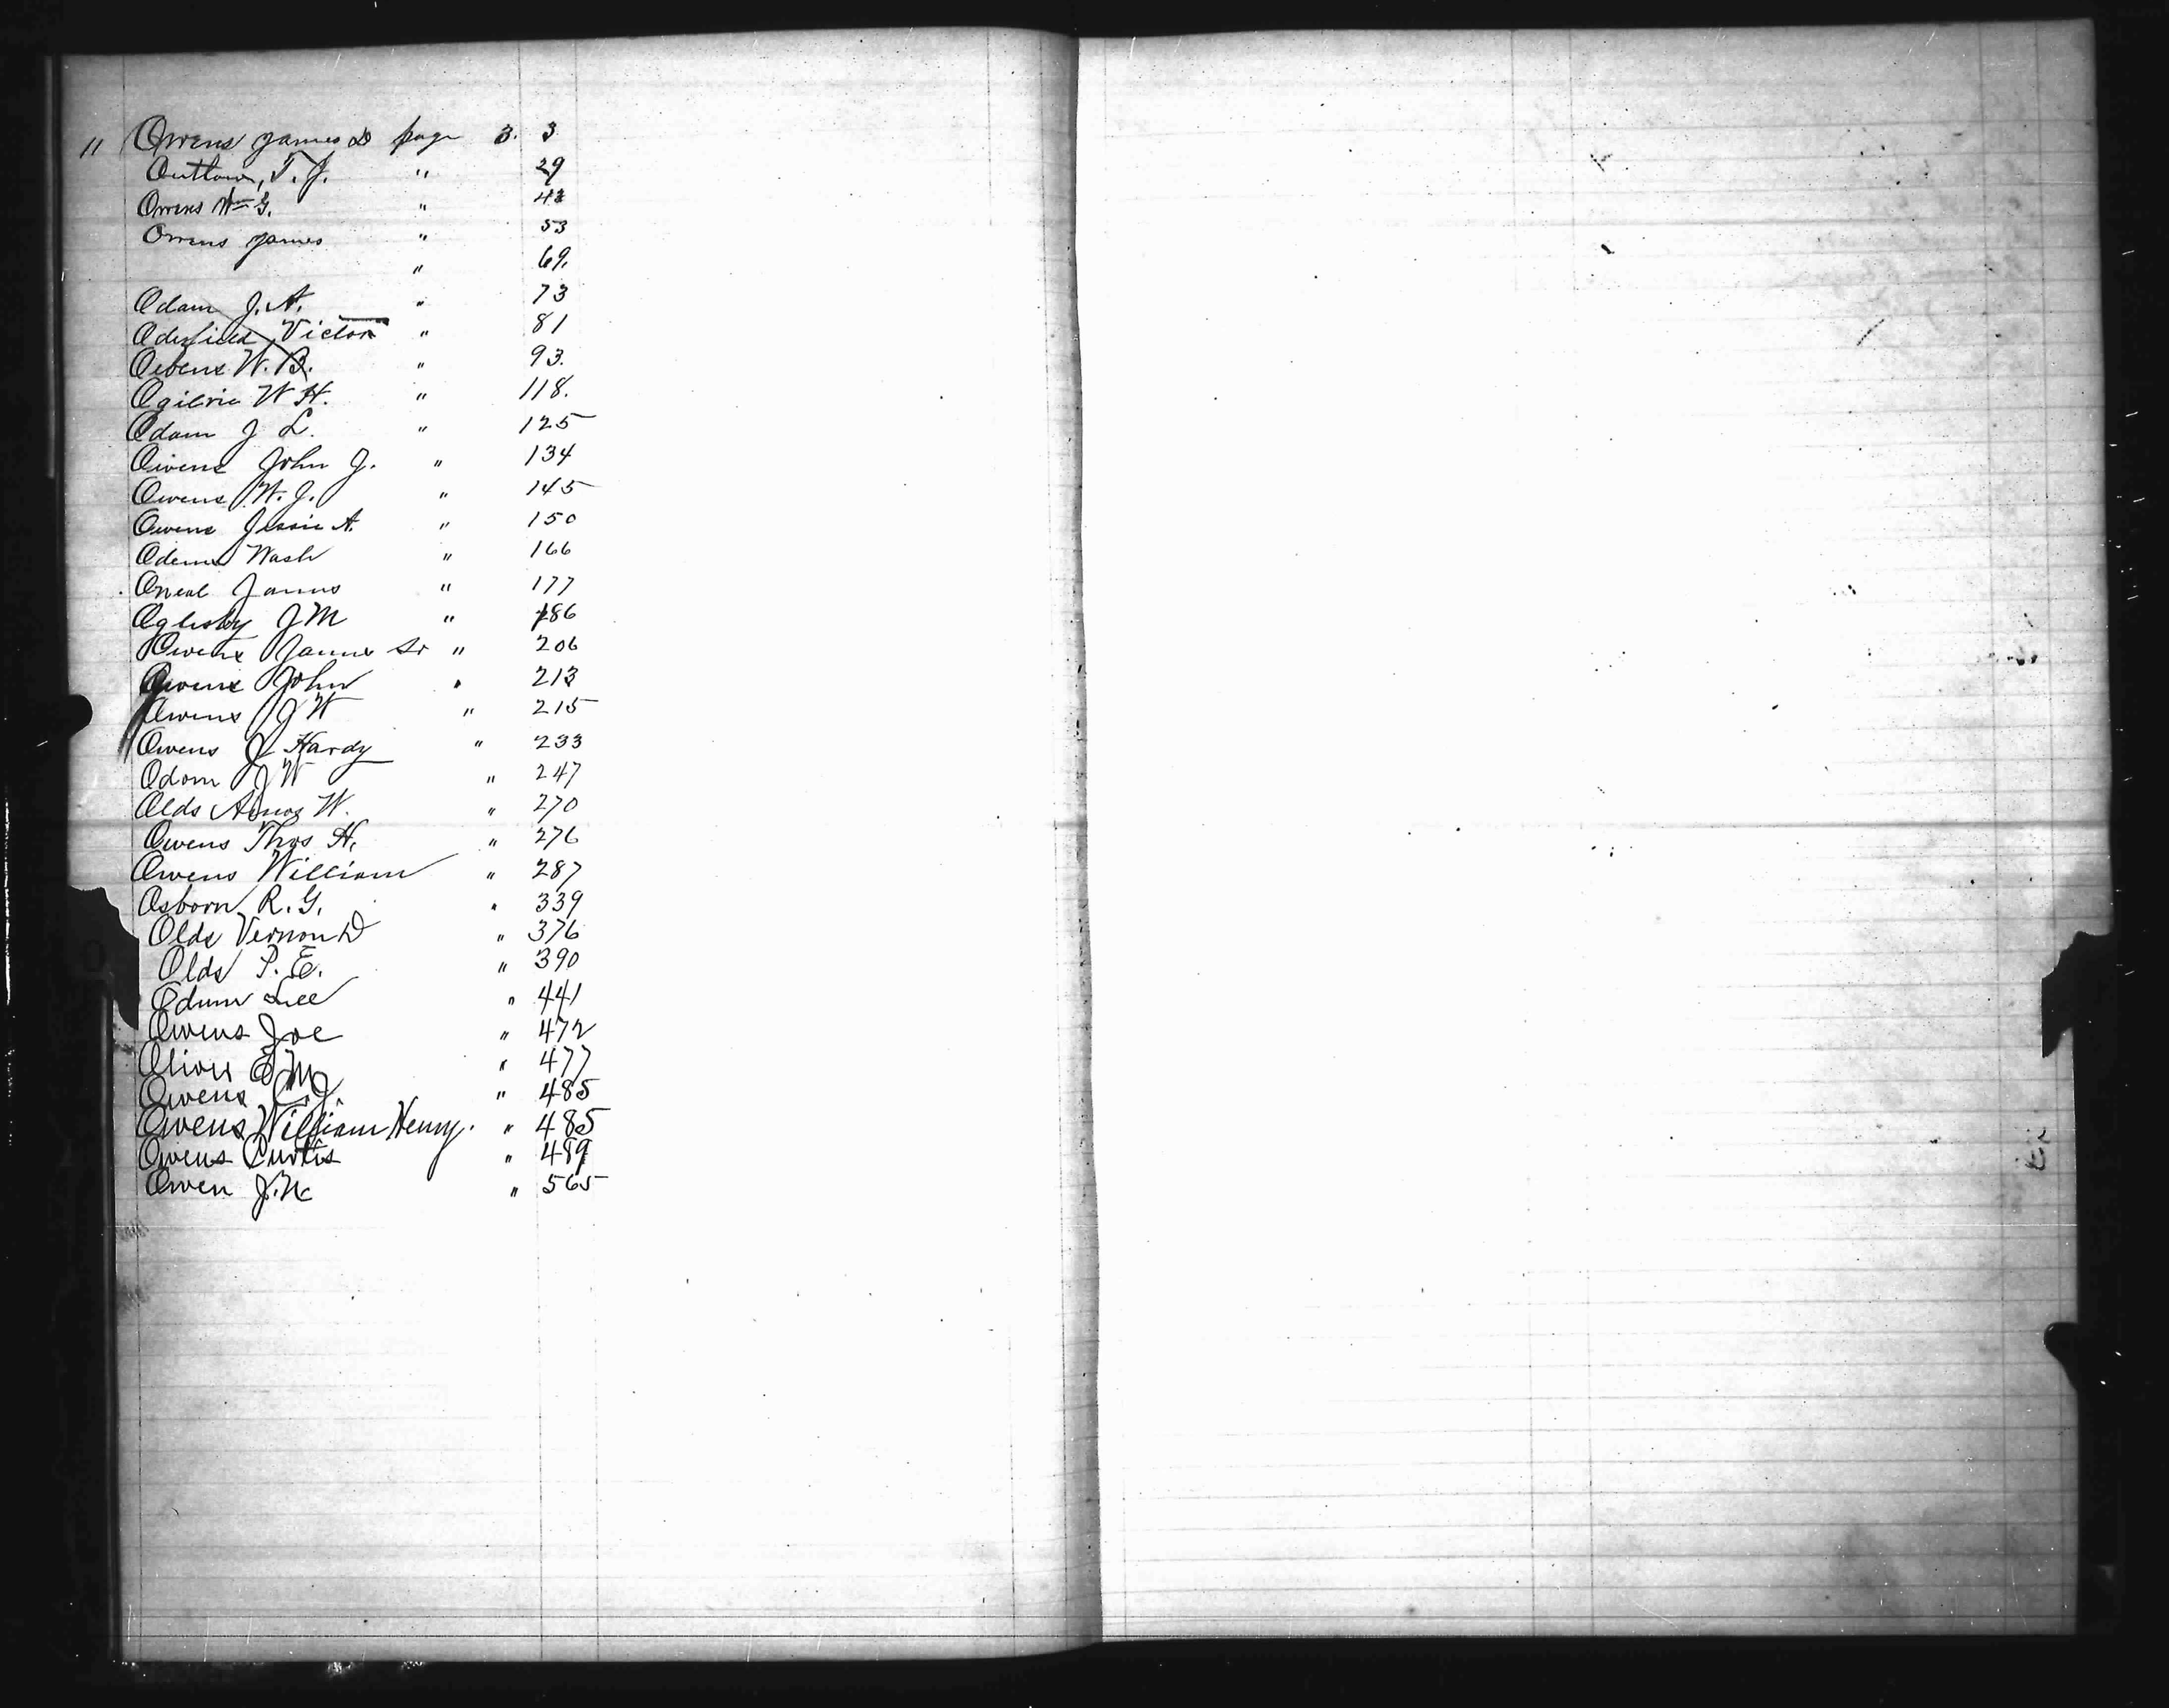 11 Owens James D page 3. 3
Outlaw, T. J. " 29
Owens Wm G. " 42
Owens James " 53
" 69.
Odam J. A. " 73
Victor " 81
Owens W. B. " 93.
Ogilvie W H. " 118.
Odam J L. " 125
Owens John J. " 134
Owens W. J. " 145
Owens Jessie A. " 150
Odem Wash " 166
Oneal James " 177
Oglesby J M " 186
Owens James Sr " 206
Owens John " 213
Owens J W " 215
Owens J Hardy " 233
Odom J W " 247
Olds Amos W. " 270
Owens Thos H. " 276
Owens William " 287
Osborn R. G. " 339
Olds Vernon D " 376
Olds P. E. " 390
Odum Lee " 441
Owens Joe " 472
Oliver E M " 477
Owens C. J. " 485
Owens William Henry. " 485
Owens Curtis " 489
Owen J. N. " 565